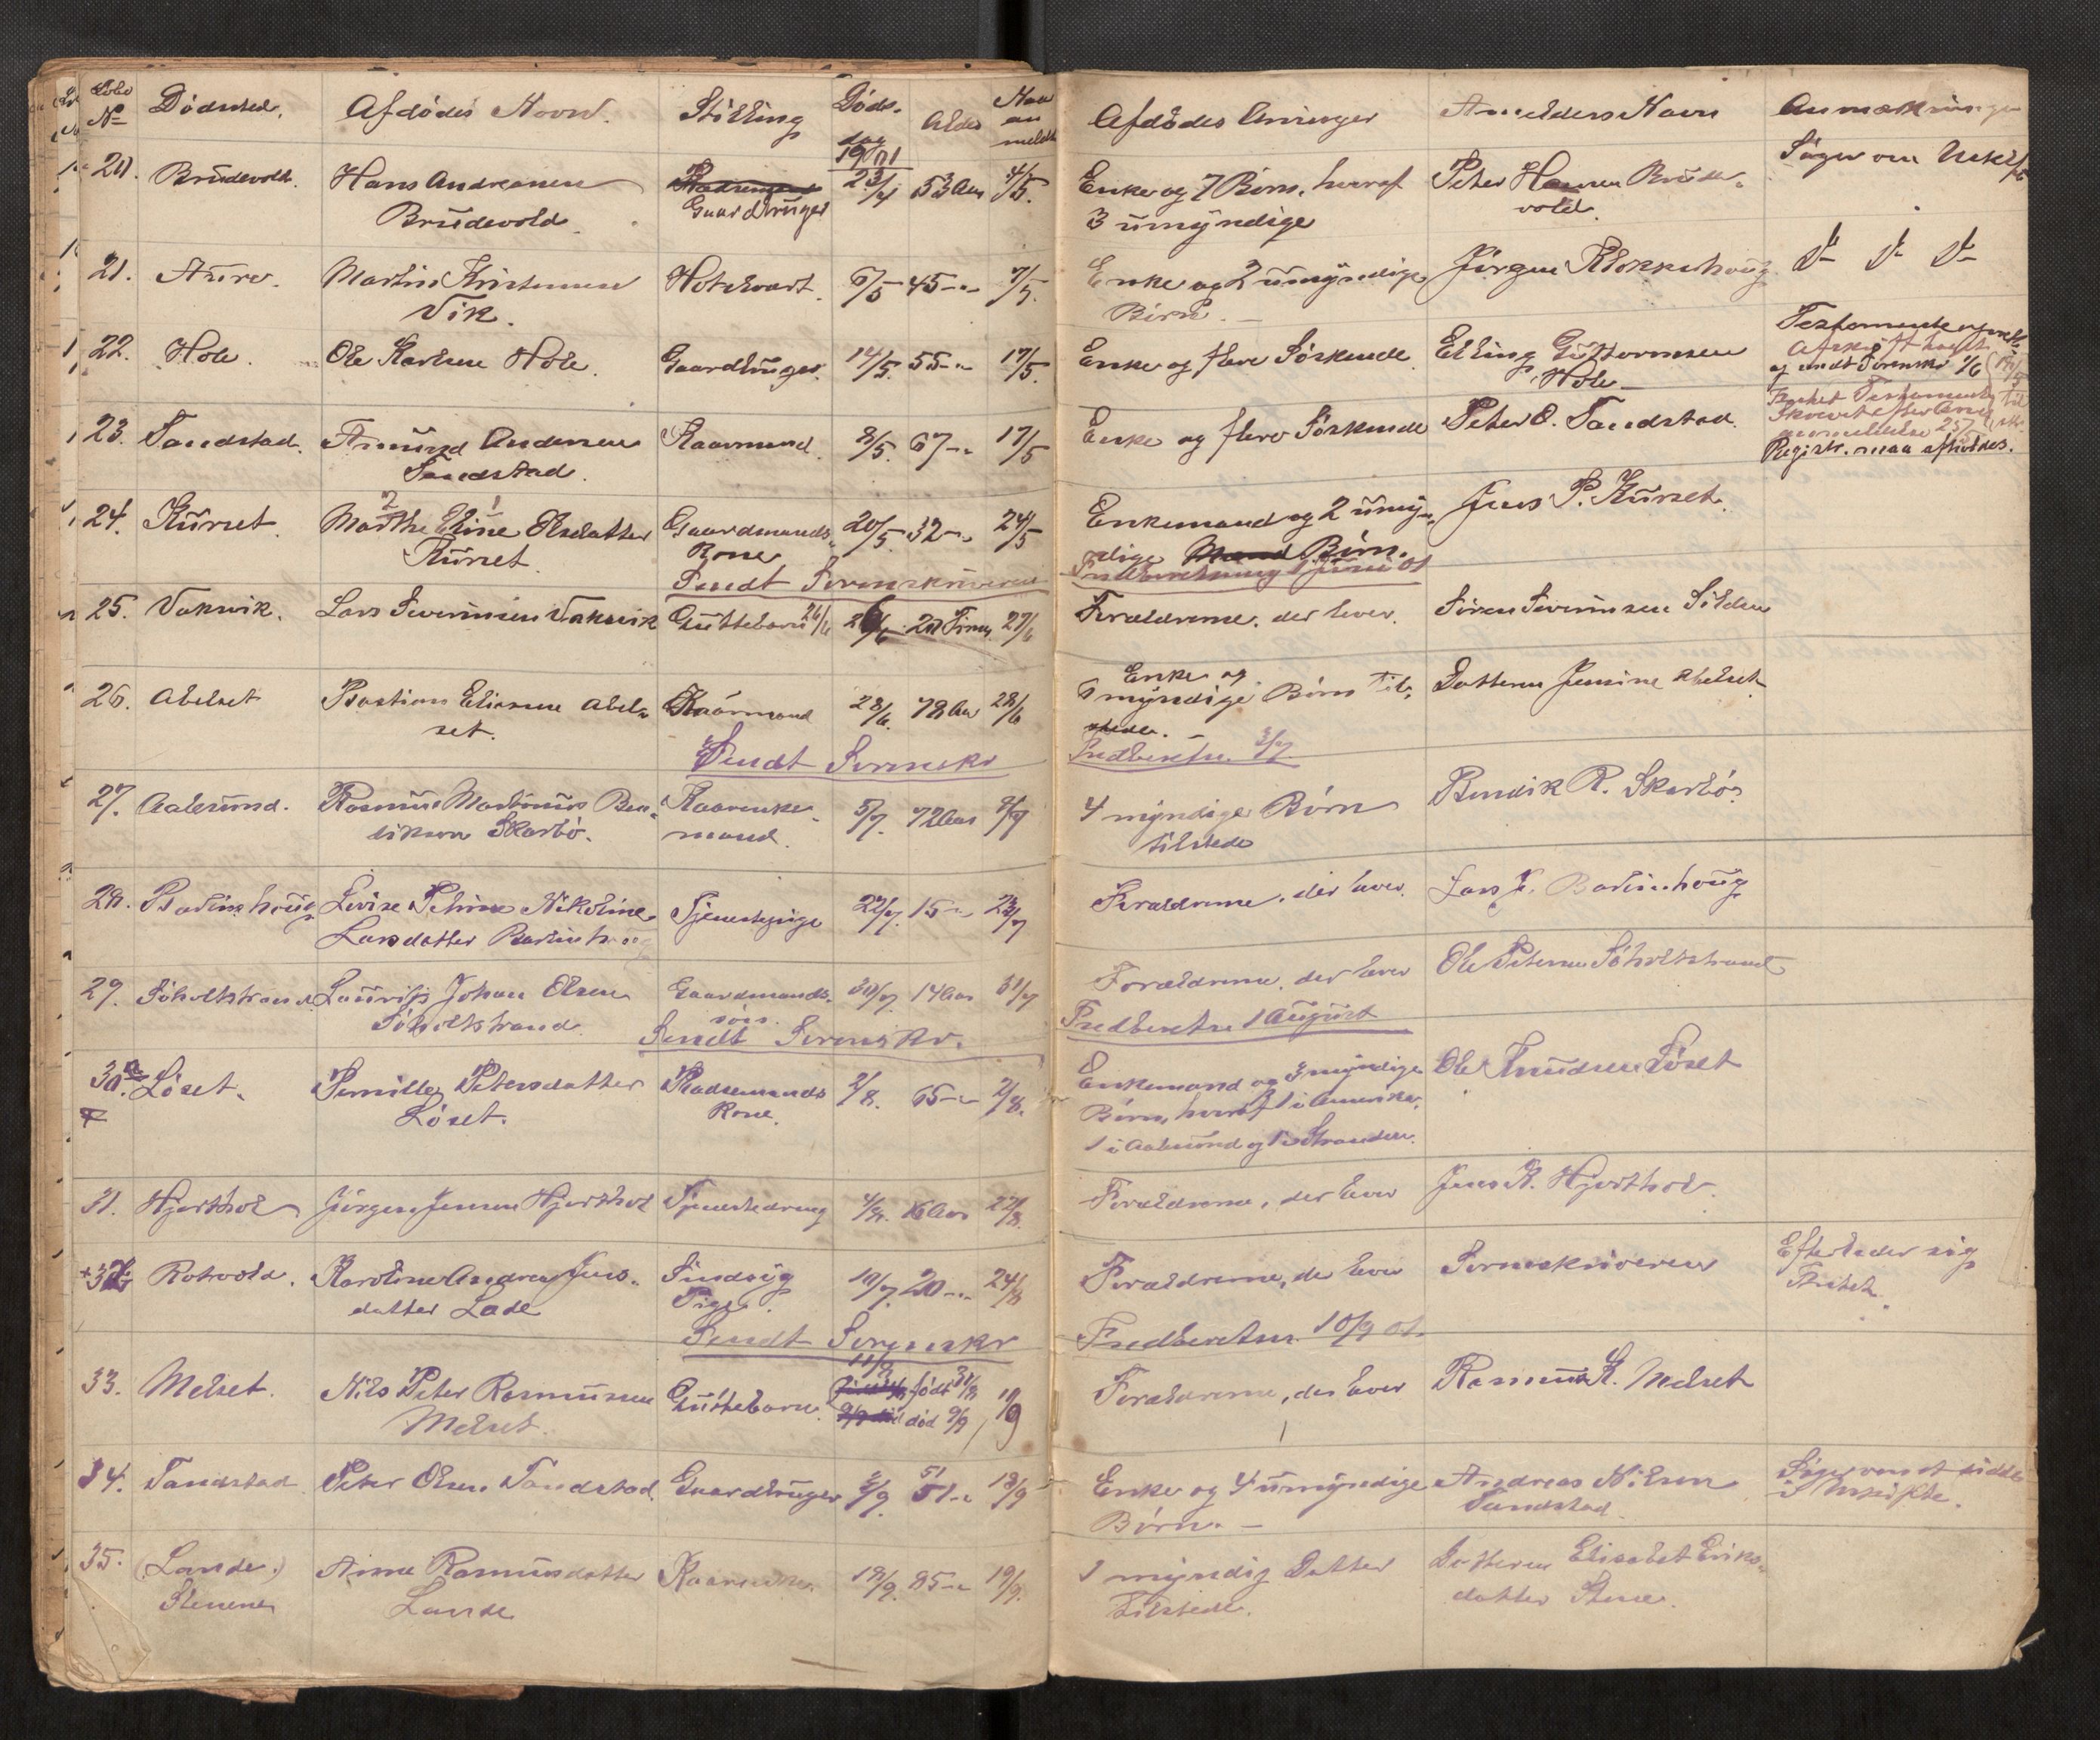 Løbe No Dødssted. Afdødes Navn. Stilling Døds- dag Alder Naar an meldt Afdødes Arvinger Anmelders Navn Anmærkninger
1901
20. Brudevold. Hans Andreasen Gaardbruger 23/4 53 Aar 4/5. Enke og 7 Børn, hvoraf Peter Hansen Brude- Søger om Uskifte
Brudevold. 3 umyndige vold.
21. Aure. Martin Kristensen Hotelvært. 6/5 45 -"- 7/5. Enke og 2 umyndige Jørgen Klokkehoug
Vik. Børn. -
22. Hole. Ole Karlsen Hole. Gaardbruger. 14/5. 55 -"- 17/5. Enke og flere Søskende Elling Guttormsen Testamente
Hole - og sendt Sorenskr 1/6
23. Tandstad. Amund Andersen Kaarmand. 8/5. 67 -"- 17/5 Enke og flere Søskende Peter O. Tandstad.
Tandstad. Registr. maa afholdes.
24. Kurset. Marthe Eline Olsdatter Gaardmands- 20/5. 32 -"- 24/5 Enkemand og 2 umyn- Jens P. Kurset.
Kurset. Kone dige Børn.
Sendt Sorenskriveren Indberetning 1 Juni 01
25. Vaksvik. Lars Severinsen Vaksvik Guttebarn 26/6 20 Timer 27/6 Forældrene, der lever. Søren Severinsen
26. Abelset Bastian Eliasen Abel- Kaarmand 28/6. 78 Aar 28/6 Enke og
set. 6 myndige Børn til- Datteren Jensine Abelset
stede. -
Sendt Sorenskr Indberetn. 3/7.
27. Aalesund. Rasmus Martinus Ben- Kaarenke- 5/7. 72 Aar 9/7 4 myndige Børn Bendik R. Skarbø.
diksen Skarbø. mand. tilstede
28. Lovise Nikoline Tjenestepige 22/7. 15 -"- 23/7 Forældrene, der lever.
Larsdatter
29. Søholtstrand Laurits Johan Olsen Gaardmands- 30/7. 14 Aar 31/7 Forældrene, der lever Ole Petersen Søholtstrand
Søholtstrand søn.
Sendt Sorenskr. Indberetn 1 August
30. Løset. Pernille Petersdatter Pladsemands 2/8. 65 -"- 2/8. Enkemand og 3 myndige Ole Knudsen Løset
Løset. Kone. Børn, hvoraf 1 i Amerika,
1 i Aalesund og 1 i Stranden.
31. Hjorthol Jørgen Jensen Hjorthol Tjenestedreng 4/8. 16 Aar 22/8. Forældrene, der lever Jens K. Hjorthol.
+32 Rotvold. Karoline Andrea Jens- Sindsig 10/7. 20 -"- 24/8 Forældrene, der lever Sorenskriveren Efterlader sig
datter Lade Pige. Intet.
Sendt Sorenskr Indberetn. 10/9 01.
33. Melset. Nils Peter Rasmussen Guttebarn. født 31/8 Forældrene, der lever Rasmus K. Melset
Melset. død 9/9 10/9
34. Tandstad Peter Olsen Tandstad. Gaardbruger 51 -"- 13/9 Enke og 4 umyndige Andreas Nilsen Søger om at sidde
Børn. - Tandstad. i Uskifte.
35. (Lande.) Anne Rasmusdatter Kaarenke. 18/9. 85 -"- 19/9. 1 myndig Datter Datteren Elisabet Eriks-
Stenene Lande tilstede. datter Stene.